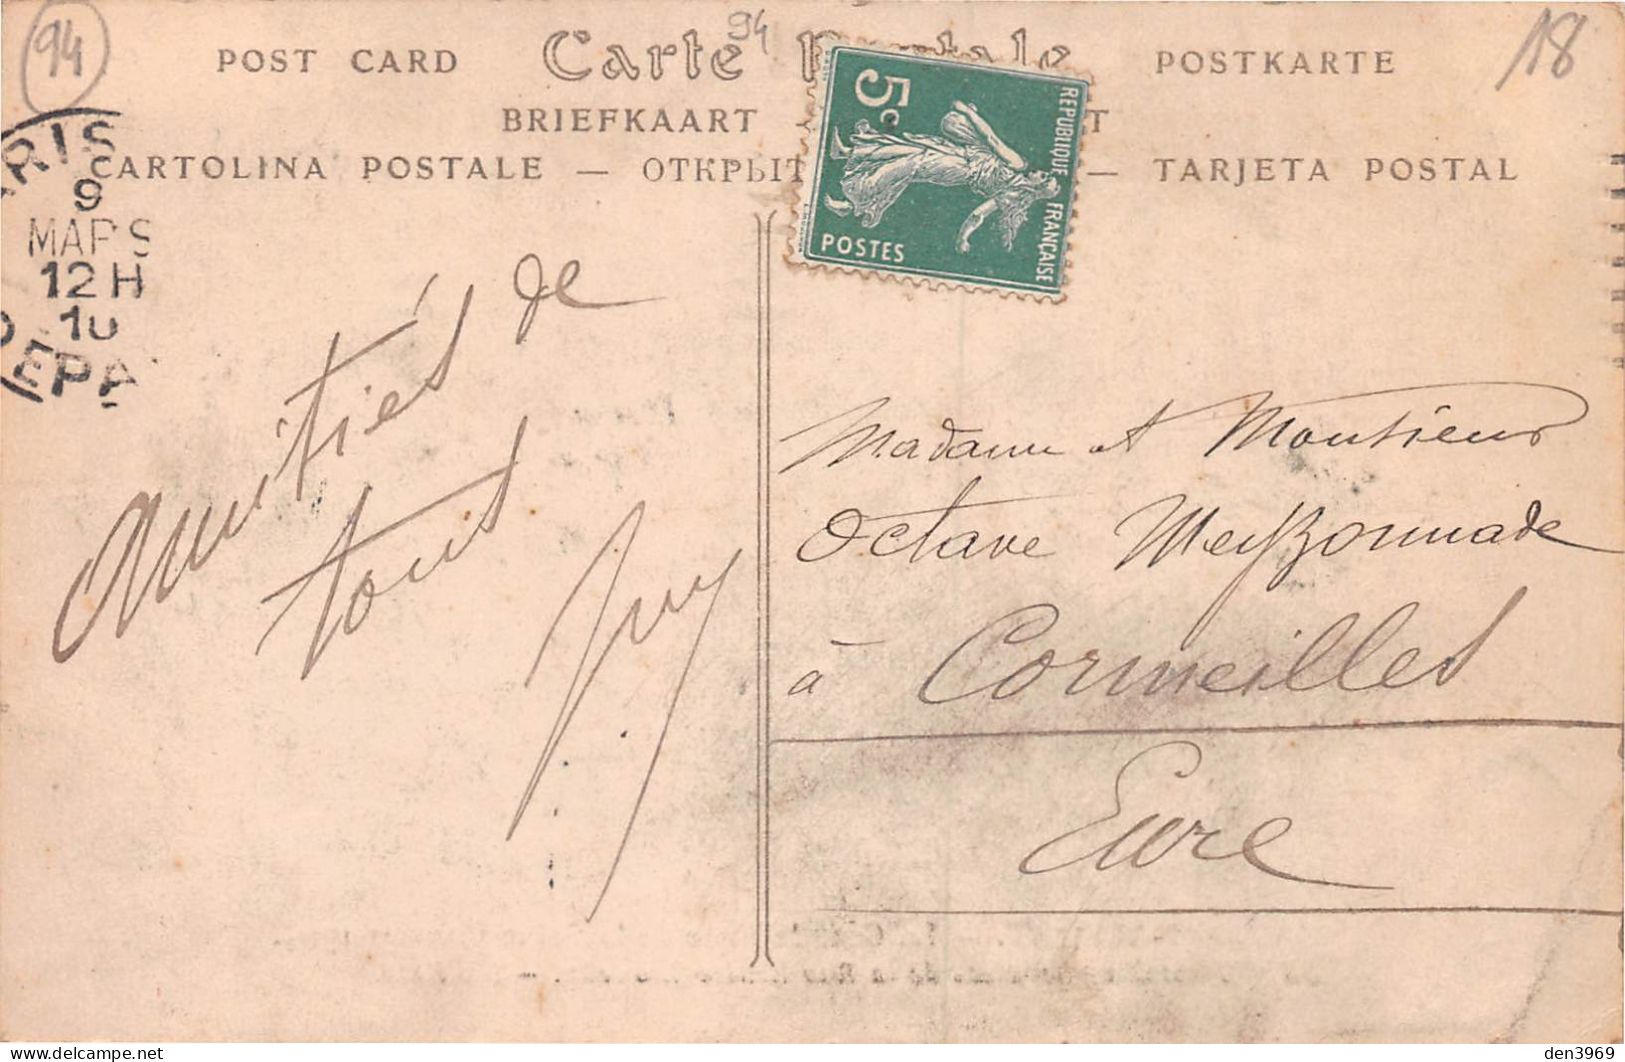 94
94
18
POST CARD Carte Postale POSTKARTE
BRIEFKAART
CARTOLINA POSTALE — ОТКРЫТ — TARJETA POSTAL
5c
REPUBLIQUE FRANÇAISE
POSTES
PARIS
9
MARS
12 H
10
DEPA
Amitiés de
tous
Madame et Monsieur
Octave Meyzonnade
à Cormeilles
Eure
den3969